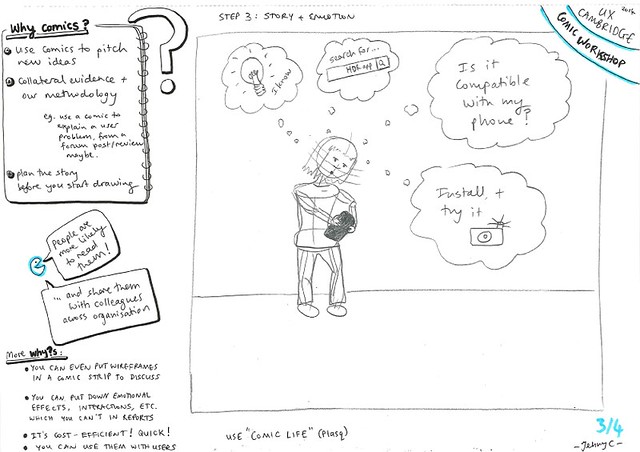 Why comics?
use comics to pitch
new ideas
Collateral evidence +
our methodology
eg. use a comic to
explain a user
problem, from a
forum post/review
maybe.
plan the story
before you start drawing
?
People are
more likely
to read
them!
... and share them
with colleagues
across organisation
More Why?s:
YOU CAN EVEN PUT WIREFRAMES
IN A COMIC STRIP TO DISCUSS
YOU CAN PUT DOWN EMOTIONAL
EFFECTS, INTERACTIONS, ETC.
WHICH YOU CAN'T IN REPORTS
IT'S COST-EFFICIENT! QUICK!
YOU CAN USE THEM WITH USERS
STEP 3: STORY + EMOTION
I know
search for...
HDR app
Is it
compatible
with my
phone?
Install, +
try it
USE "COMIC LIFE" (Plasq)
2014
UX
CAMBRIDGE
COMIC WORKSHOP
3/4
- Jenny C -